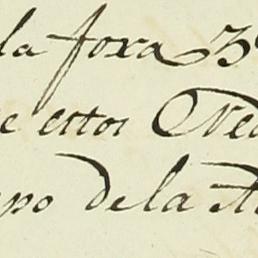 la foxa 3
e estos Ve
po de la A